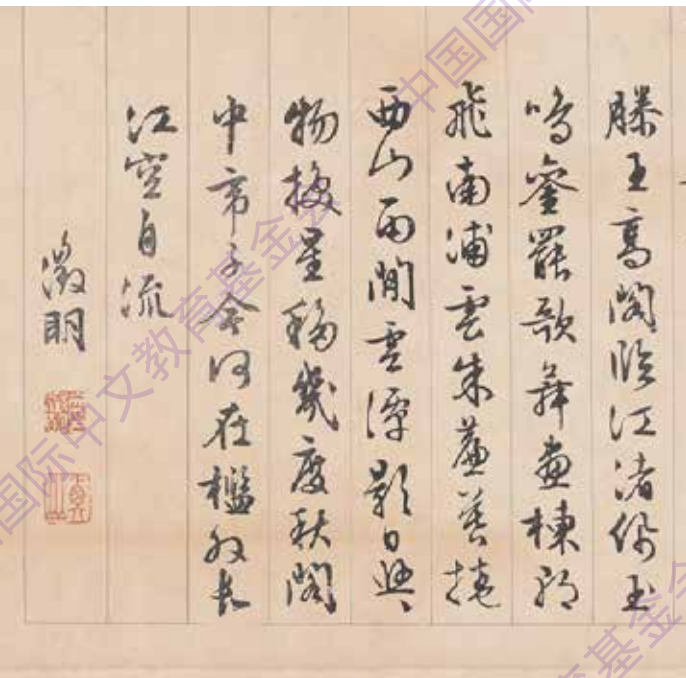 滕王高閣臨江渚佩玉
鳴鑾罷歌舞畫棟朝
飛南浦雲朱簾暮捲
西山雨閒雲潭影日悠〻
物換星移幾度秋閣
中帝子今何在檻外長
江空自流
徵明
中国国
国际中文教育基金会
基金会